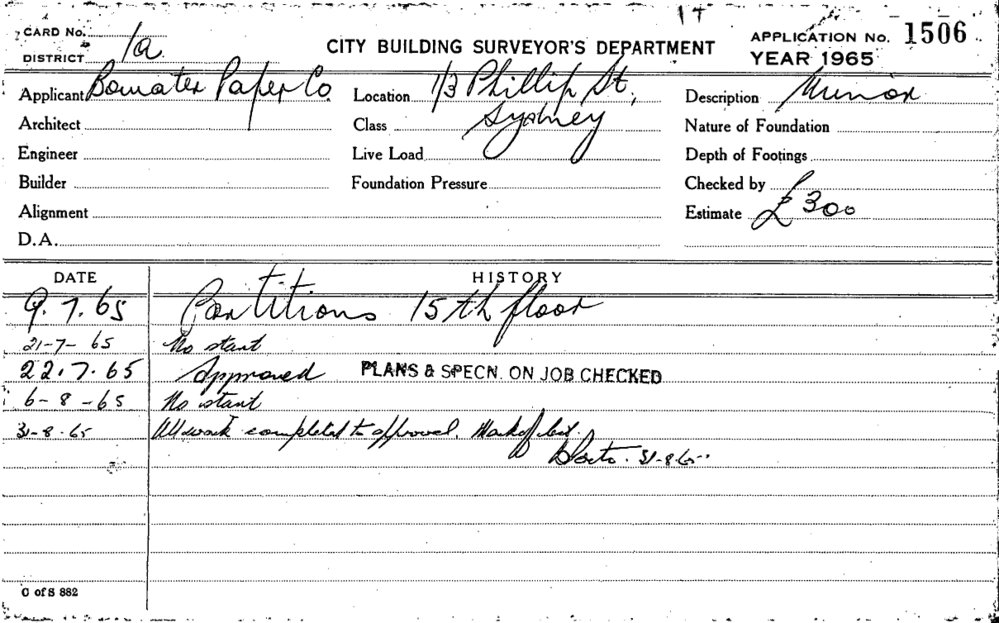 1T
CARD No.
DISTRICT 1a
CITY BUILDING SURVEYOR'S DEPARTMENT
APPLICATION No. 1506
YEAR 1965
Applicant Bowater Paper Co
Location 1/3 Phillip St,
Sydney
Description Minor
Architect
Class
Nature of Foundation
Engineer
Live Load
Depth of Footings
Builder
Foundation Pressure
Checked by
Alignment
Estimate £300
D.A.
DATE HISTORY
9.7.65 Partitions 15th floor
21-7-65 No start
22.7.65 Approved PLANS & SPECN. ON JOB CHECKED
6-8-65 No start
31-8-65 All work completed to approval.
31-8-65
C of S 882